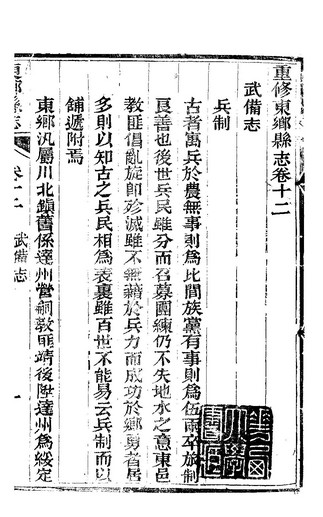 重修東鄉縣志卷十二
武備志
兵制
古者寓兵於農無事則爲比閭族黨有事則爲伍兩卒旅制
良善也後世兵民雖分而召募團練仍不失地水之意東邑
教匪倡亂旋即殄滅雖不無藉於兵力而成功於鄉勇者居
多則以知古之兵民相爲表裏雖百世不能易云兵制而以
舖遞附焉
東鄉汛屬川北鎮舊係達州營嗣教匪靖後陞達州爲綏定
東鄉縣志
卷十二
武備志
一